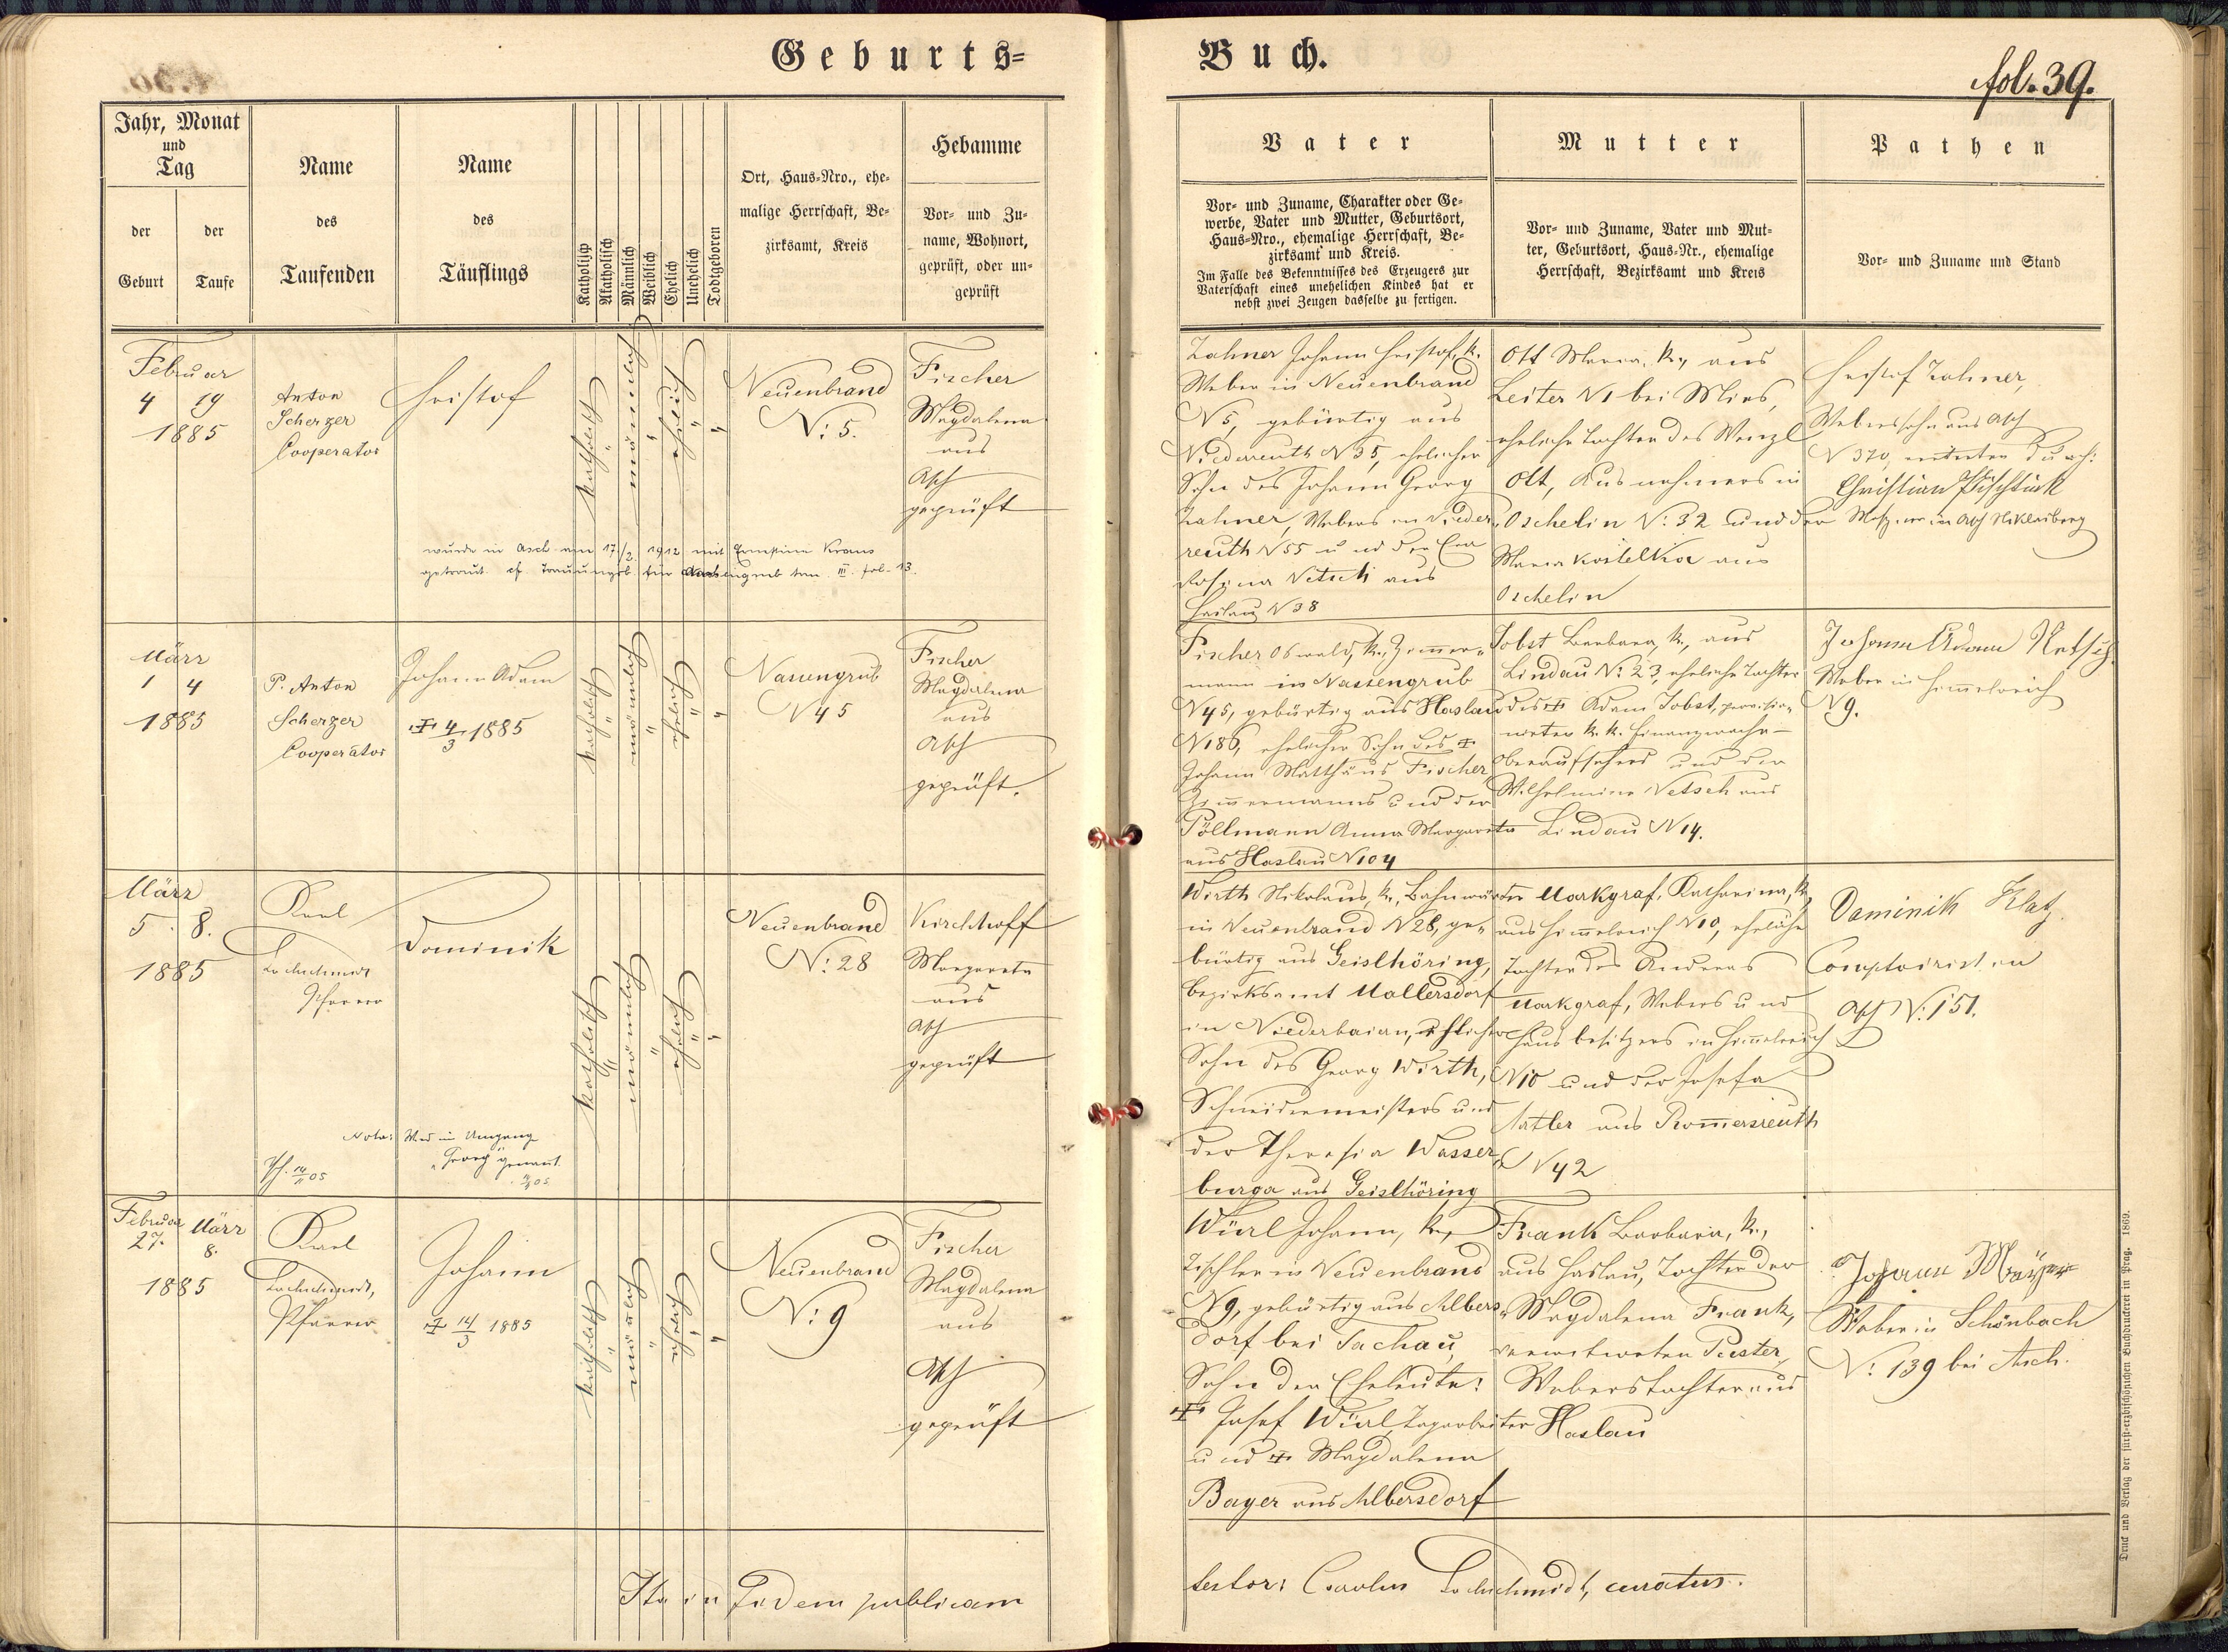 Geburts=
Buch.
fol. 39.
Jahr, Monat
und
Tag
der
Geburt
der
Taufe
Name
des
Taufenden
Name
des
Täuflings
Katholisch
Akatholisch
Männlich
Weiblich
Ehelich
Unehelich
Todtgeboren
Ort, Haus-Nro., ehe-
malige Herrschaft, Be-
zirksamt, Kreis
Hebamme
Vor- und Zu-
name, Wohnort,
geprüft, oder un-
geprüft
Vater
Vor- und Zuname, Charakter oder Ge-
werbe, Vater und Mutter, Geburtsort,
Haus-Nro., ehemalige Herrschaft, Be-
zirksamt und Kreis.
Im Falle des Bekenntnisses des Erzeugers zur
Vaterschaft eines unehelichen Kindes hat er
nebst zwei Zeugen dasselbe zu fertigen.
Mutter
Vor- und Zuname, Vater und Mut-
ter, Geburtsort, Haus-Nr., ehemalige
Herrschaft, Bezirksamt und Kreis
Pathen
Vor- und Zuname und Stand
Februar
4 19
1885
Anton
Scherzer
Cooperator
Christof
katholisch
"
männlich
"
ehelich
"
"
Neuenbrand
N: 5.
Fischer
Magdalena
aus
Asch
geprüft
wurde in Asch am 17./2. 1912 mit Ernestine Kraus
getraut cf. Trauungsb. für Nassengrub tom. III. fol. 13.
Zahner Johann Christof, k.
Weber in Neuenbrand
N 5, gebürtig aus
Niederreuth N 35, ehelicher
Sohn des Johann Georg
Zahner, Webers in Nieder-
reuth N 55 und der Eva
Rosina Netsch aus
Haslau N 38
Ott Maria, k., aus
Leiter N 1 bei Mies,
eheliche Tochter des Wenzl
Ott, Ausnehmers in
Oschelin N: 32 und der
Maria Kostelka aus
Oschelin
Christof Zahner,
Weberssohn aus Asch
N 370, vertreten durch:
Christian
März
1 4
1885
P. Anton
Scherzer
Cooperator
Johann Adam
† 4/3 1885
katholisch
"
männlich
"
ehelich
"
"
Nassengrub
N 45
Fischer
Magdalena
aus
Asch
geprüft.
Fischer Oswald, k., Zimmer-
mann in Nassengrub
N 45, gebürtig aus Haslau
N 186, ehelicher Sohn des †
Johann Matthäus Fischer,
Zimmermanns und der
Pöllmann Anna Margareta
aus Haslau N 104
Jobst Barbara, k., aus
Lindau N: 23, eheliche Tochter
des † Adam Jobst, provisio-
nirten k. k. Finanzwach-
oberaufsehers und der
Wilhelmine Netsch aus
Lindau N 14.
Johann Adam Netsch
Weber in Himmelreich
N 9.
März
5. 8.
1885
Karl
Lochschmidt
Pfarrer
Dominik
katholisch
"
männlich
"
ehelich
"
"
Neuenbrand
N: 28
Kirchhoff
Margareta
aus
Asch
geprüft
Nota: Wird im Umgang
"Georg" genannt.
Wirth Nikolaus, k., Bahnwärter
in Neuenbrand N 28, ge-
bürtig aus Geislhöring,
Bezirksamt Mallersdorf
in Niederbaiern, ehelicher
Sohn des Georg Wirth,
Schneidermeisters und
der Theresia Wasser-
burga aus Geislhöring
Markgraf, Katharina, k.,
aus Himmelreich N 10, eheliche
Tochter des Andreas
Markgraf, Webers und
Hausbesitzers in Himmelreich
N 10 und der Josefa
Sattler aus Rommersreuth
N 42
Dominik Klatz
Comptoirist in
Asch N: 151.
Februar März
27. 8.
1885
Karl
Lochschmidt,
Pfarrer
Johann
† 14/3 1885
katholisch
"
männlich
"
ehelich
"
"
Neuenbrand
N: 9
Fischer
Magdalena
aus
Asch
geprüft
Würl Johann, k.,
Tischler in Neuenbrand
N 9, gebürtig aus Albers-
dorf bei Tachau,
Sohn der Eheleute:
† Josef Würl, Tagarbeiter
und † Magdalena
Bayer aus Albersdorf
Frank Barbara, k.,
aus Haslau, Tochter der
Magdalena Frank,
verwitweten Pester,
Weberstochter aus
Haslau
Johann
Weber in Schönbach
N: 139 bei Asch.
Ita in fidem publicam
testor: Carolus Lochschmidt, curatus.
Druck und Verlag der fürst-erzbischöflichen Buchdruckerei in Prag. 1869.